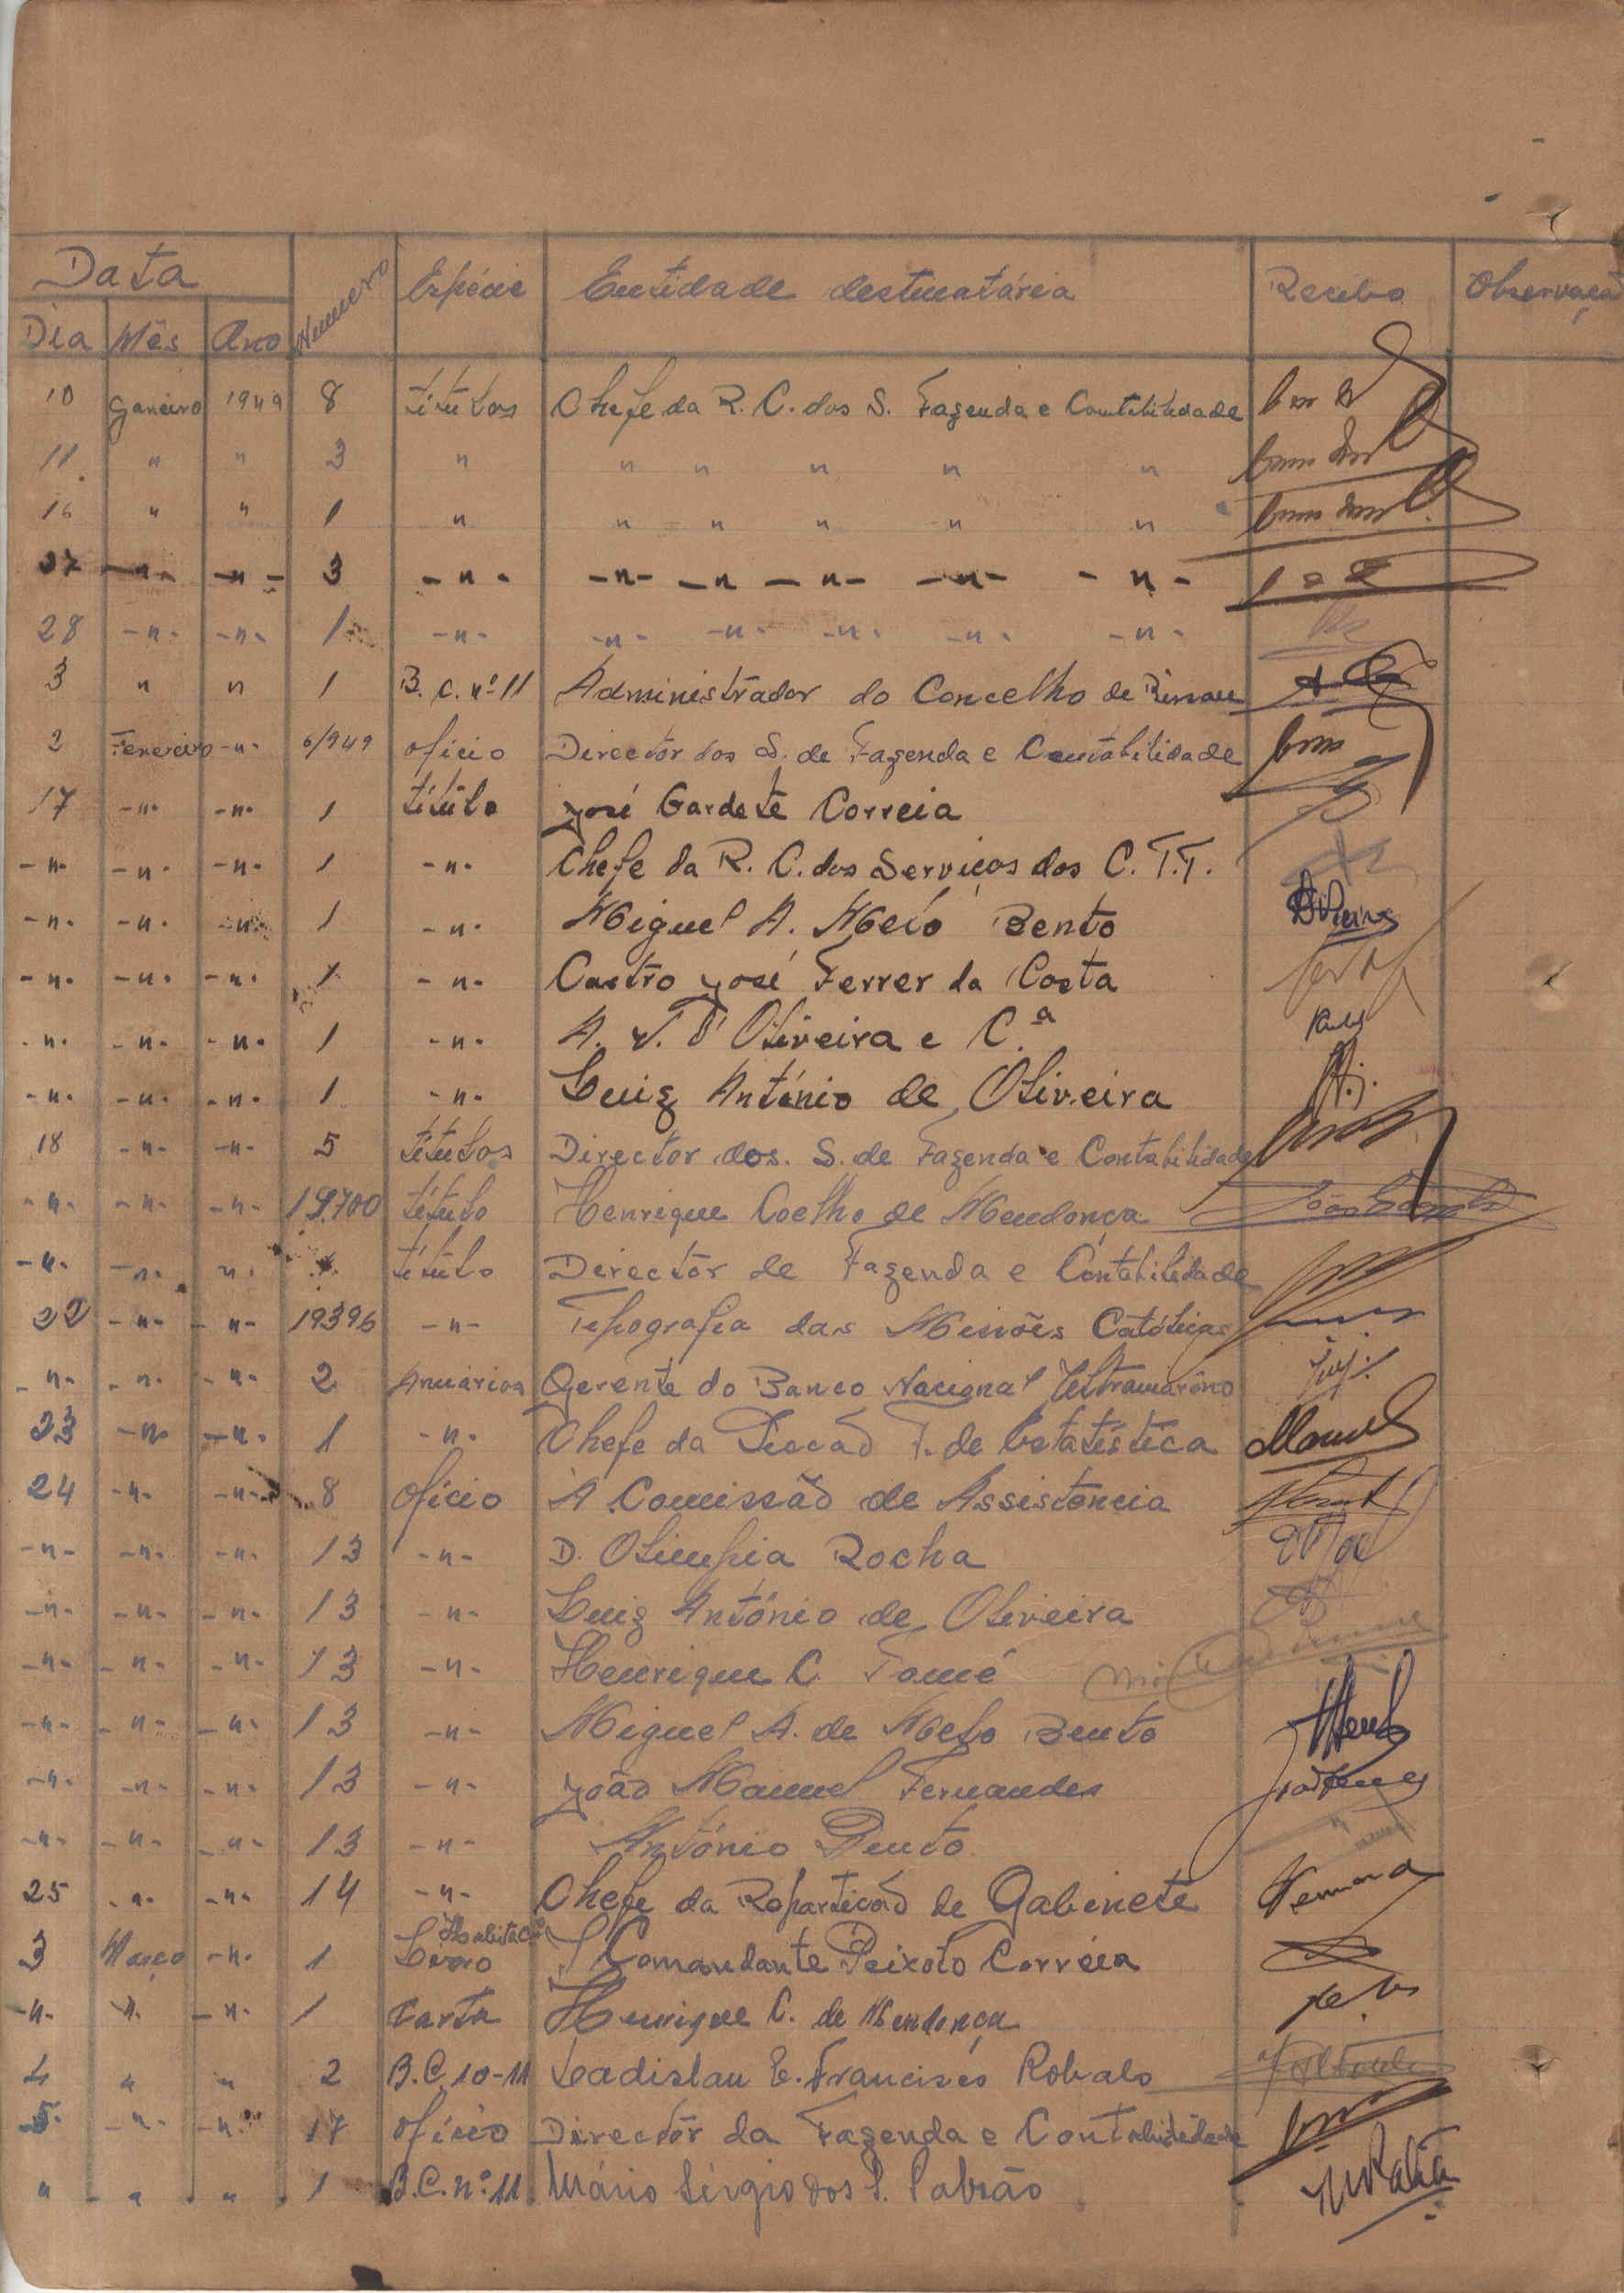 Data Numero Espécie Entidade destinatária Recibo Observação
Dia Mês Ano
10 Janeiro 1949 8 títulos Chefe da R. C. dos S. Fazenda e Contabilidade
11 " " 3 " " " " " "
16 " " 1 " " " " " "
27 -"- -"- 3 -"- -"- -"- -"- -"- -"-
28 -"- -"- 1 -"- -"- -"- -"- -"- -"-
3 " " 1 B. C. nº 11 Administrador do Concelho de Bissau
2 Fevereiro -"- 6/949 ofício Director dos S. de Fazenda e Contabilidade
17 -"- -"- 1 título José Gardete Correia
-"- -"- -"- 1 -"- Chefe da R. C. dos Serviços dos C. T. T.
-"- -"- -"- 1 -"- Miguel A. Melo Bento
-"- -"- -"- 1 -"- Castro José Ferrer da Costa
-"- -"- -"- 1 -"- A. V. d'Oliveira e C.ª
-"- -"- -"- 1 -"- Luiz António de Oliveira
18 -"- -"- 5 títulos Director dos. S. de Fazenda e Contabilidade
-"- -"- -"- 19700 título Henrique Coelho de Mendonça
-"- -"- " título Director de Fazenda e Contabilidade
22 -"- -"- 19396 -"- Tipografia das Missões Católicas
-"- -"- -"- 2 Anuários Gerente do Banco Nacional Ultramarino
23 -"- -"- 1 -"- Chefe da Secção T. de Estatística
24 -"- -"- 8 Ofício À Comissão de Assistência
-"- -"- -"- 13 -"- D. Olimpia Rocha
-"- -"- -"- 13 -"- Luiz António de Oliveira
-"- -"- -"- 13 -"- Henrique C. Tomé
-"- -"- -"- 13 -"- Miguel A. de Melo Bento
-"- -"- -"- 13 -"- João Manuel Fernandes
-"- -"- -"- 13 -"- António Bento
25 -"- -"- 14 -"- Chefe da Repartição de Gabinete
3 Março -"- 1 Livro Comandante Peixoto Corrêia
-"- " -"- 1 Carta Henrique C. de Mendonça
4 " " 2 B.C. 10-11 Ladislau E. Francisco Robalo
5 -"- -"- 17 ofício Director da Fazenda e Contabilidade
" " " 1 B.C. nº 11 Mário Sérgio dos S. Pabrão